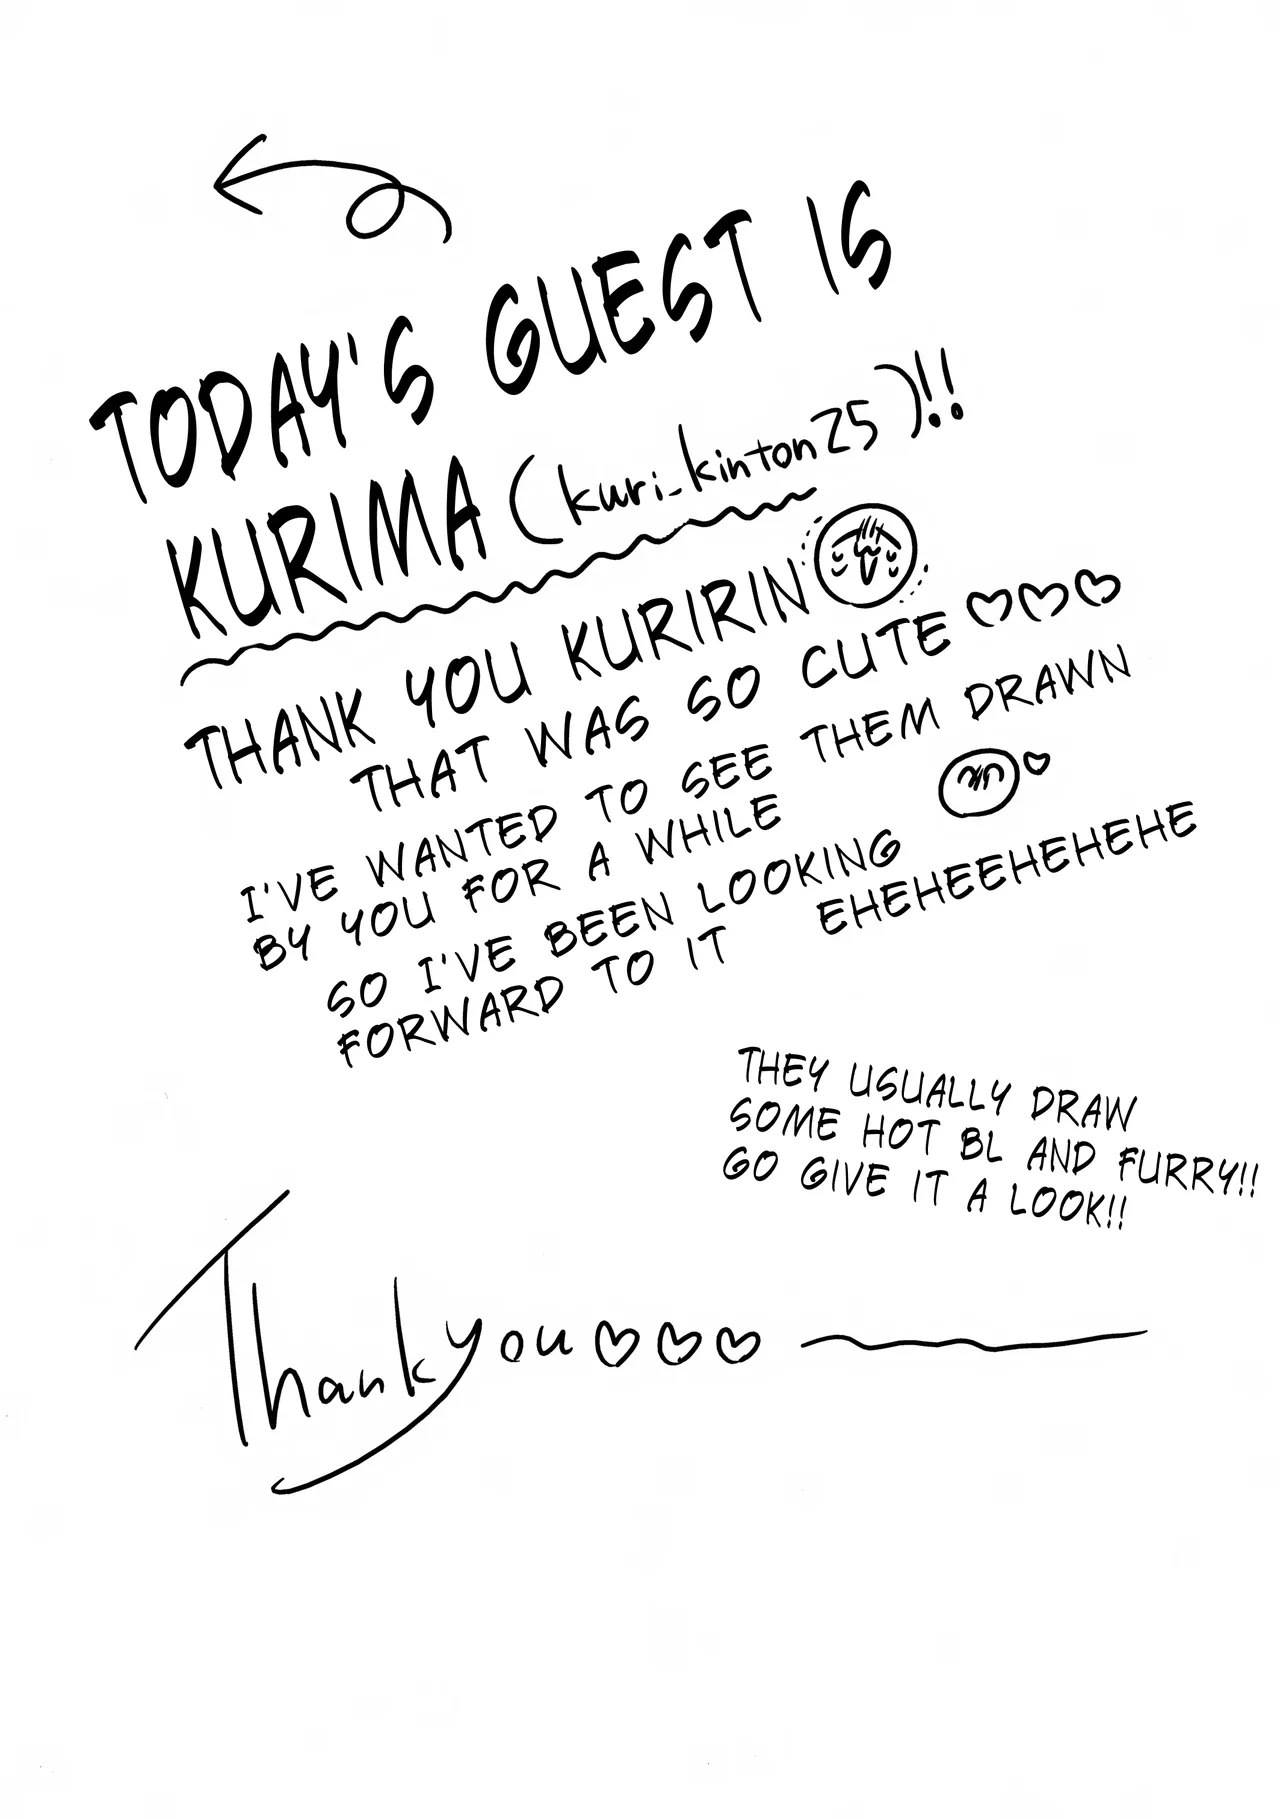 TODAY'S GUEST IS
KURIMA (kuri_kinton25)!!
THANK YOU KURIRIN
THAT WAS SO CUTE ♡♡♡
I'VE WANTED TO SEE THEM DRAWN
BY YOU FOR A WHILE
SO I'VE BEEN LOOKING
FORWARD TO IT
♡
EHEHEEHEHEHEHE
THEY USUALLY DRAW
SOME HOT BL AND FURRY!!
GO GIVE IT A LOOK!!
Thank you ♡♡♡